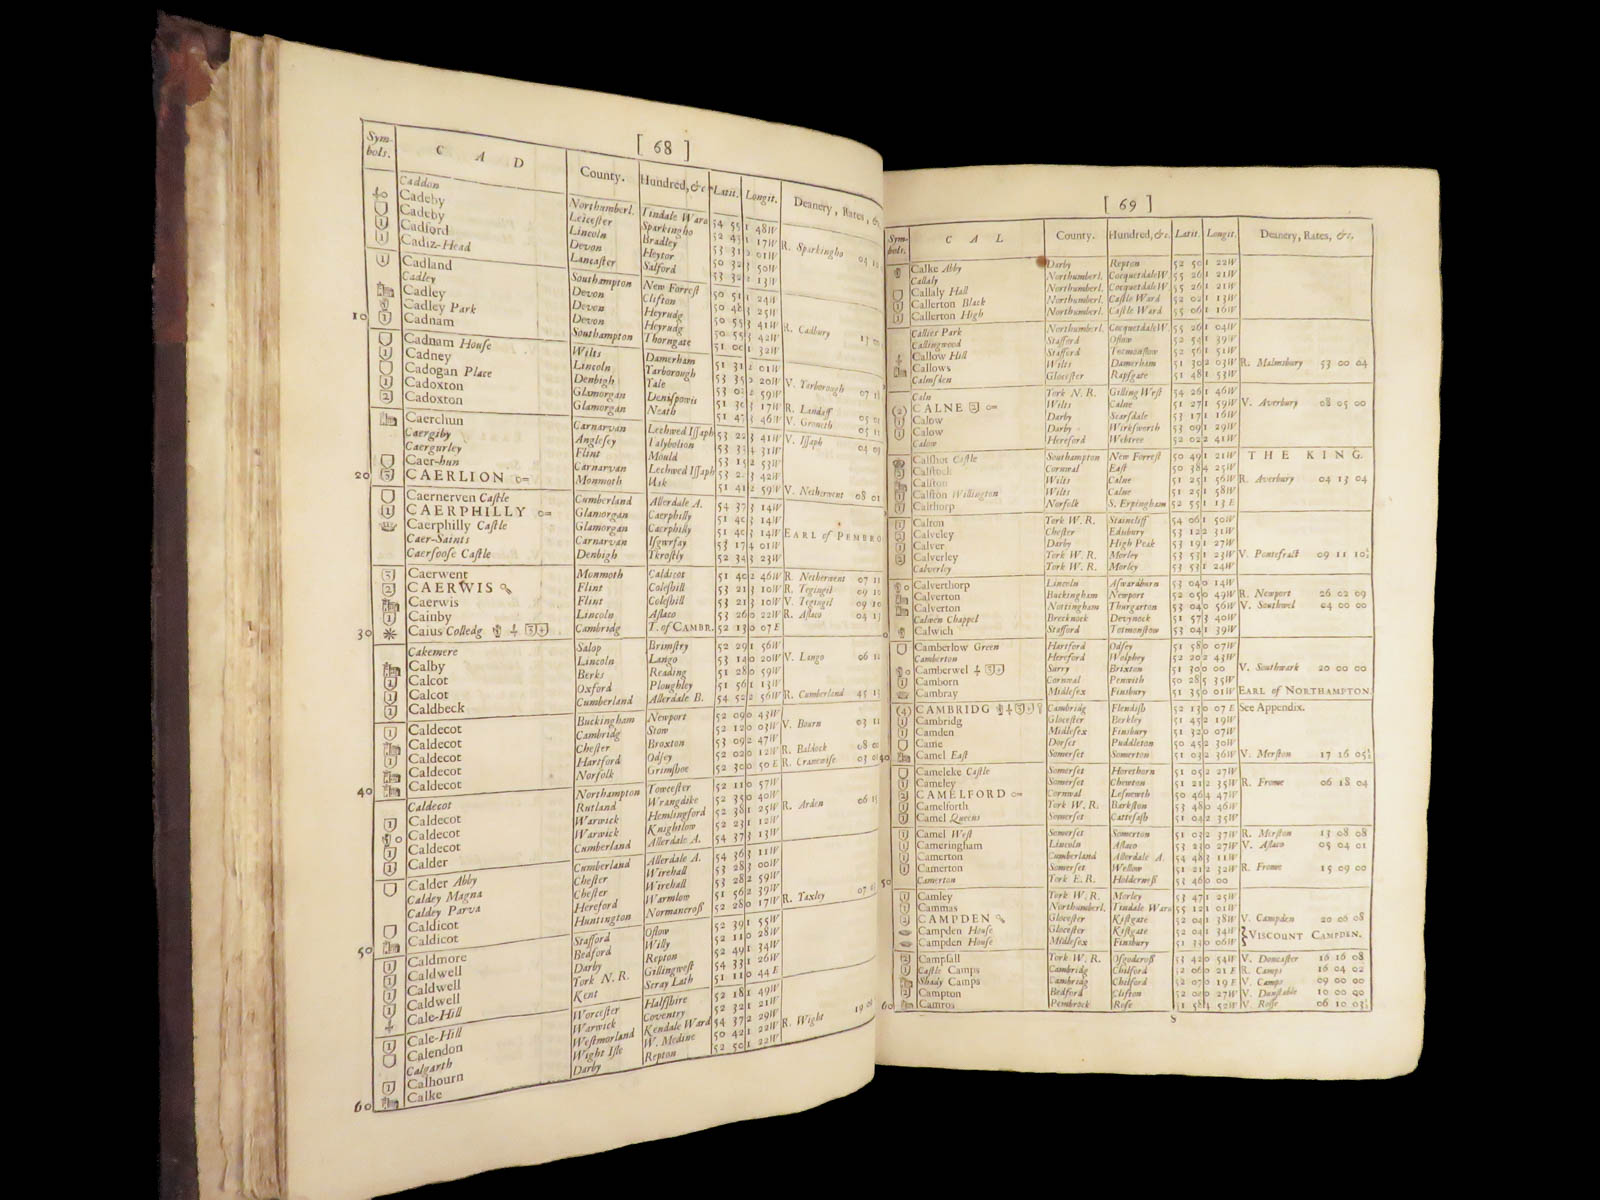 [ 68 ]
Sym-bols. C A D County. Hundred, &c Latit. Longit. Deanery, Rates, &c.
Caddon Northumberl. Tindale Ward 54 55 1 48W
Cadeby Leiceſter Sparkingho R. Sparkingho
Cadeby Lincoln Bradley
Cadford Devon Heytor
Cadiz-Head Lancaſter Salford
Cadland Southampton New Forreſt
Cadley Devon Clifton
Cadley Devon Heyrudg
Cadley Park Devon Heyrudg R. Cadbury
10 Cadnam Southampton Thorngate
Cadnam Houſe Wilts Damerham
Cadney Lincoln Yarborough V. Yarborough
Cadogan Place Denbigh Yale
Cadoxton Glamorgan Deniſpowis R. Landaff
Cadoxton Glamorgan Neath V. Groneth
Caerchun Carnarvan Lechwed Iſſaph V. Iſſaph
Caergiby Angleſey Talybolion
Caergurley Flint Mould
Caer-hun Carnarvan Lechwed Iſſaph
20 CAERLION Monmoth Uſk V. Netherwent 08 01
Caernerven Caſtle Cumberland Allerdale A. 54 37 3 14W
CAERPHILLY Glamorgan Caerphilly
Caerphilly Caſtle Glamorgan Caerphilly EARL of PEMBRO
Caer-Saints Carnarvan Iſgwrfay
Caerſooſe Caſtle Denbigh
Caerwent Monmoth Caldicot 51 40 2 46W R. Netherwent 07 11
CAERWIS Flint Coleſhill 53 21 3 10W R. Tegingil 09 10
Caerwis Flint Coleſhill 53 21 3 10W V. Tegingil 09 10
Cainby Lincoln Aſlaco 53 26 0 22W R. Aſlaco 04 13
30 Caius Colledg Cambridg T. of CAMBR. 52 13 0 07E
Cakemere Salop Brimſtry 52 29 1 56W
Calby Lincoln Lango 53 14 0 20W V. Lango 06 12
Calcot Berks Reading 51 28 0 59W
Calcot Oxford Ploughley 51 56 1 13W
Caldbeck Cumberland Allerdale B. 54 52 2 56W R. Cumberland 45 13
Caldecot Buckingham Newport 52 09 0 43W
Caldecot Cambridg Stow 52 12 0 03W V. Bourn 03 11
Caldecot Cheſter Broxton 53 09 2 47W
Caldecot Hartford Odſey 52 02 0 12W R. Baldock 08 00
40 Caldecot Norfolk Grimſhoe 52 30 0 50E R. Cranewiſe
Caldecot Northampton Towceſter 52 11 0 57W
Caldecot Rutland Wrangdike 52 35 0 40W
Caldecot Warwick Hemlingford 52 38 1 25W R. Arden
Caldecot Warwick Knightlow 52 23 1 12W
Calder Cumberland Allerdale A. 54 37 3 13W
Calder Abby Cumberland Allerdale A. 54 36 3 11W
Caldey Magna Cheſter Wirehall 53 28 3 00W
Caldey Parva Cheſter Wirehall 53 28 2 59W
Caldicot Hereford Warmlow 51 56 2 39W
50 Caldicot Huntington Normancroß 52 28 0 17W R. Taxley
Caldmore Stafford Oflow 52 39 1 55W
Caldwell Bedford Willy 52 11 0 28W
Caldwell Darby Repton 52 49 1 34W
Caldwell York N. R. Gillingweſt 54 33 1 26W
Cale-Hill Kent Scray Lath 51 11 0 44E
Cale-Hill Worceſter Halfſhire 52 18 1 49W
Calendon Warwick Coventry 52 32 1 21W
Calgarth Weſtmorland Kendale Ward 54 37 2 29W
Calhourn Wight Iſle W. Medine 50 42 1 22W R. Wight
60 Calke Darby Repton 52 50 1 22W
[ 69 ]
Sym-bols. C A L County. Hundred, &c. Latit. Longit. Deanery, Rates, &c.
Calke Abby Darby Repton 52 50 1 22W
Callaly Northumberl. CocquetdaleW. 55 26 1 21W
Callaly Hall Northumberl. CocquetdaleW. 55 26 1 21W
Callerton Black Northumberl. Caſtle Ward 55 02 1 13W
Callerton High Northumberl. Caſtle Ward 55 06 1 16W
Callier Park Northumberl. CocquetdaleW. 55 26 1 04W
Callingwood Stafford Oflow 52 54 1 39W
Callow Hill Stafford Totmonſlow 52 56 1 51W
Callows Wilts Damerham 51 30 2 03W R. Malmſbury 53 00 04
Calmſden Gloceſter Rapſgate 51 48 1 53W
Caln York N. R. Gilling Weſt 54 26 1 46W
(2) CALNE Wilts Calne 51 27 1 59W V. Averbury 08 05 00
Calow Darby Scarſdale 53 17 1 16W
Calow Darby Wirkſworth 53 09 1 29W
Calow Hereford Webtree 52 02 2 41W
Calſhot Caſtle Southampton New Forreſt 50 49 1 21W THE KING.
Calſtock Cornwal Eaſt 50 38 4 25W
Calſton Wilts Calne 51 25 1 56W R. Averbury 04 13 04
Calſton Willington Wilts Calne 51 25 1 58W
Calthorp Norfolk S. Erpingham 52 55 1 13E
Calton York W. R. Staincliff 54 06 1 50W
Calveley Cheſter Edisbury 53 12 2 31W
Calver Darby High Peak 53 19 1 27W
Calverley York W. R. Morley 53 53 1 23W V. Pontefraſt 09 11 10½
Calverley York W. R. Morley 53 53 1 24W
Calverthorp Lincoln Aſwardburn 53 04 0 14W
Calverton Buckingham Newport 52 05 0 49W R. Newport 26 02 09
Calverton Nottingham Thurgarton 53 04 0 56W V. Southwel 04 00 00
Calwen Chappel Brecknock Devynock 51 57 3 40W
Calwich Stafford Totmonſlow 53 04 1 39W
Camberlow Green Hartford Odſey 51 58 0 07W
Camberton Hereford Wolphey 52 20 2 43W
Camberwel Surry Brixton 51 30 0 00 V. Southwark 20 00 00
Camborn Cornwal Penwith 50 28 5 35W
Cambray Midleſex Finsbury 51 35 0 01W EARL of NORTHAMPTON.
(4) CAMBRIDG Cambridg Flendiſh 52 13 0 07E See Appendix.
Cambridg Gloceſter Berkley 51 45 2 19W
Camden Midleſex Finsbury 51 32 0 07W
Came Dorſet Puddleton 50 45 2 30W
40 Camel Eaſt Somerſet Somerton 51 03 2 36W V. Merſton 17 16 05½
Cameleke Caſtle Somerſet Horethorn 51 05 2 27W
Cameley Somerſet Chewton 51 21 2 35W R. Frome 06 18 04
CAMELFORD Cornwal Leſnewth 50 46 4 47W
Camelforth York W. R. Barkſton 53 48 0 46W
Camel Queens Somerſet Cattefaſh 51 04 2 35W
Camel Weſt Somerſet Somerton 51 03 2 37W R. Merſton 13 08 08
Cameringham Lincoln Aſlaco 53 23 0 27W V. Aſlaco 05 04 01
Camerton Cumberland Allerdale A. 54 48 3 11W
Camerton Somerſet Wellow 51 21 2 32W R. Frome 15 09 00
50 Camerton York E. R. Holderneß 53 46 0 00
Camley York W. R. Morley 53 47 1 25W
Cammas Northumberl. Tindale Ward 55 12 1 01W
CAMPDEN Gloceſter Kiſtgate 52 04 1 38W V. Campden 20 06 08
Campden Houſe Gloceſter Kiſtgate 52 04 1 34W VISCOUNT CAMPDEN.
Campden Houſe Midleſex Finsbury 51 33 0 06W
Campſall York W. R. Oſgodcroß 53 42 0 54W V. Doncaſter 16 16 08
Caſtle Camps Cambridg Chilford 52 06 0 21E R. Camps 16 04 02
Shady Camps Cambridg Chilford 52 07 0 19E V. Camps 09 00 00
Campton Bedford Clifton 52 02 0 27W V. Dunſtable 10 00 90
60 Camros Pembrock Roſe 51 58 4 52W V. Roſſe 06 10 03½
S